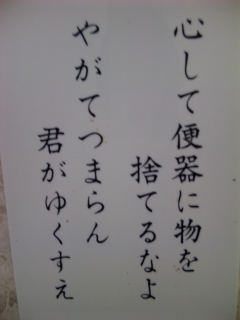 心して便器に物を
捨てるなよ
やがてつまらん
君がゆくすえ